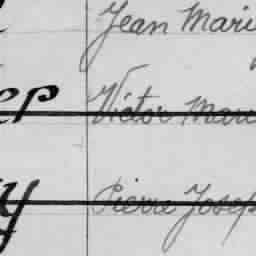 Jean Mari
ep Victor Marc
y Pierre Josep